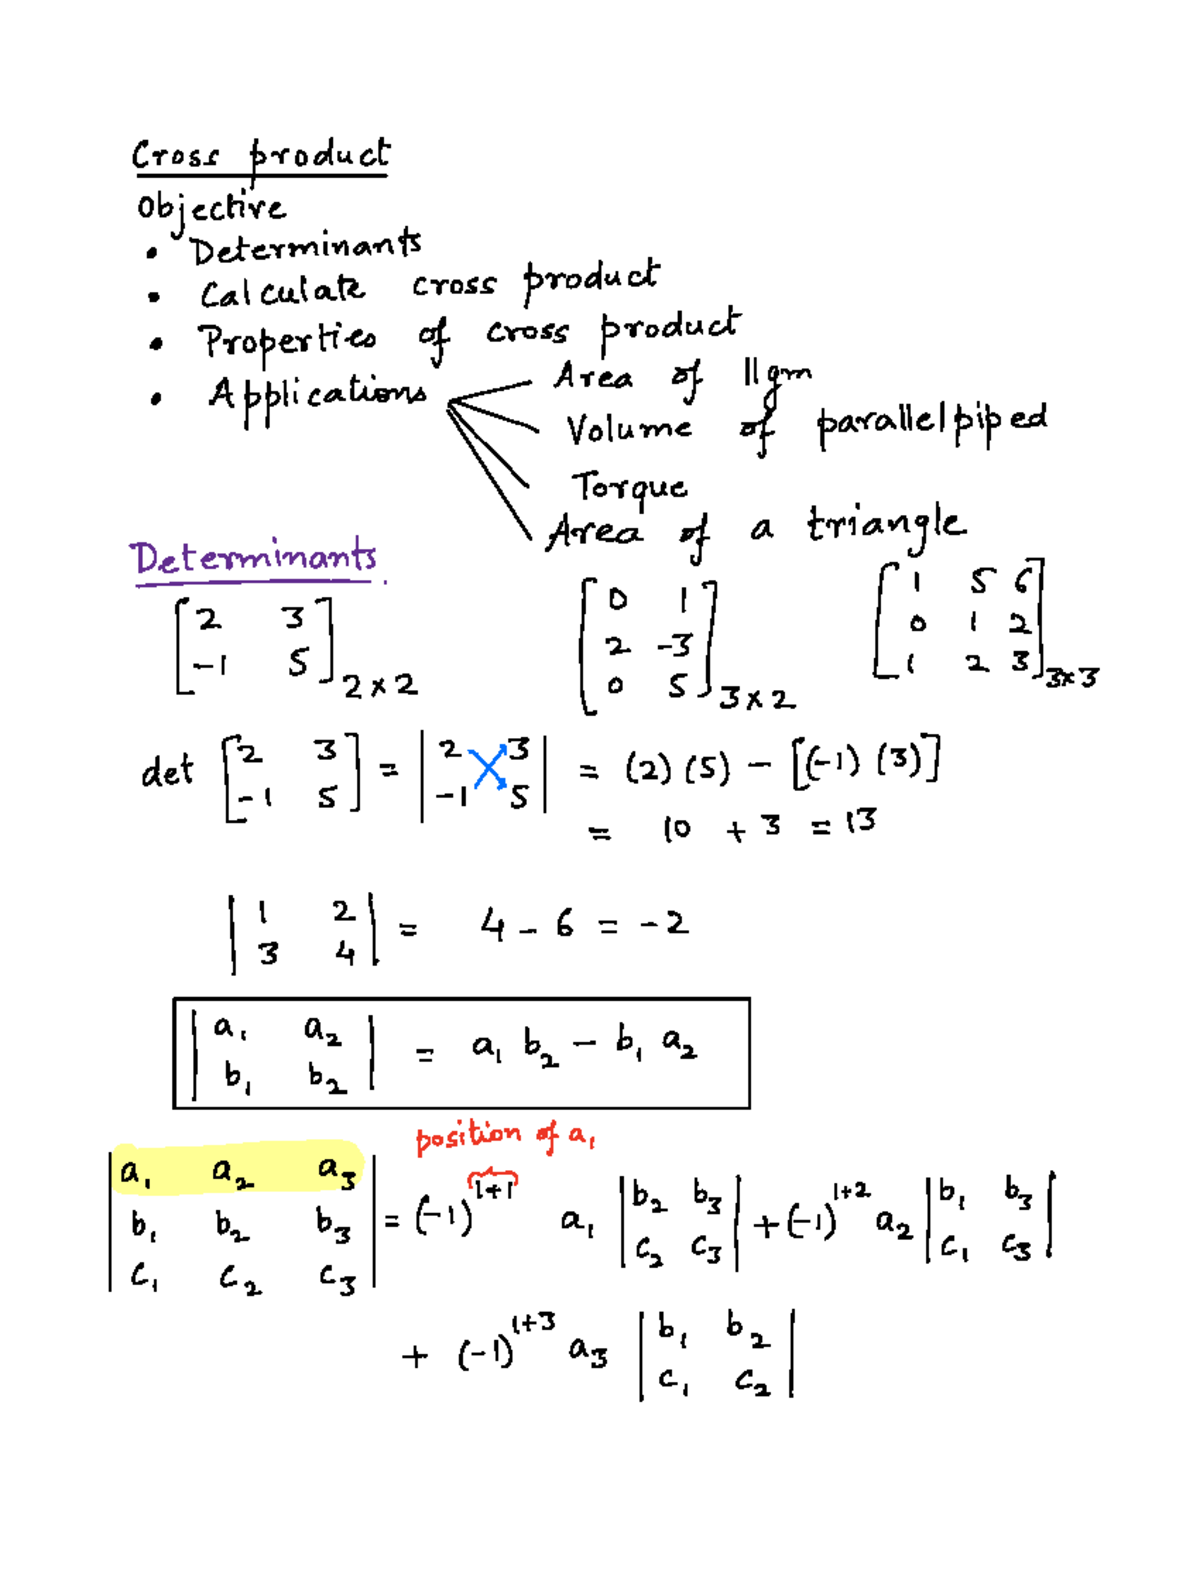 Cross product
Objective
• Determinants
• Calculate cross product
• Properties of cross product
• Applications
Area of ||gm
Volume of parallelpiped
Torque
Area of a triangle
Determinants.
[2 3
-1 5] 2×2
[0 1
2 -3
0 5] 3×2
[1 5 6
0 1 2
1 2 3] 3×3
det [2 3
-1 5] = |2 3
-1 5| = (2)(5) - [(-1)(3)]
= 10 + 3 = 13
|1 2
3 4| = 4 - 6 = -2
|a₁ a₂
b₁ b₂| = a₁ b₂ - b₁ a₂
position of a₁
|a₁ a₂ a₃
b₁ b₂ b₃
c₁ c₂ c₃| = (-1)^{1+1} a₁ |b₂ b₃
c₂ c₃| + (-1)^{1+2} a₂ |b₁ b₃
c₁ c₃|
+ (-1)^{1+3} a₃ |b₁ b₂
c₁ c₂|